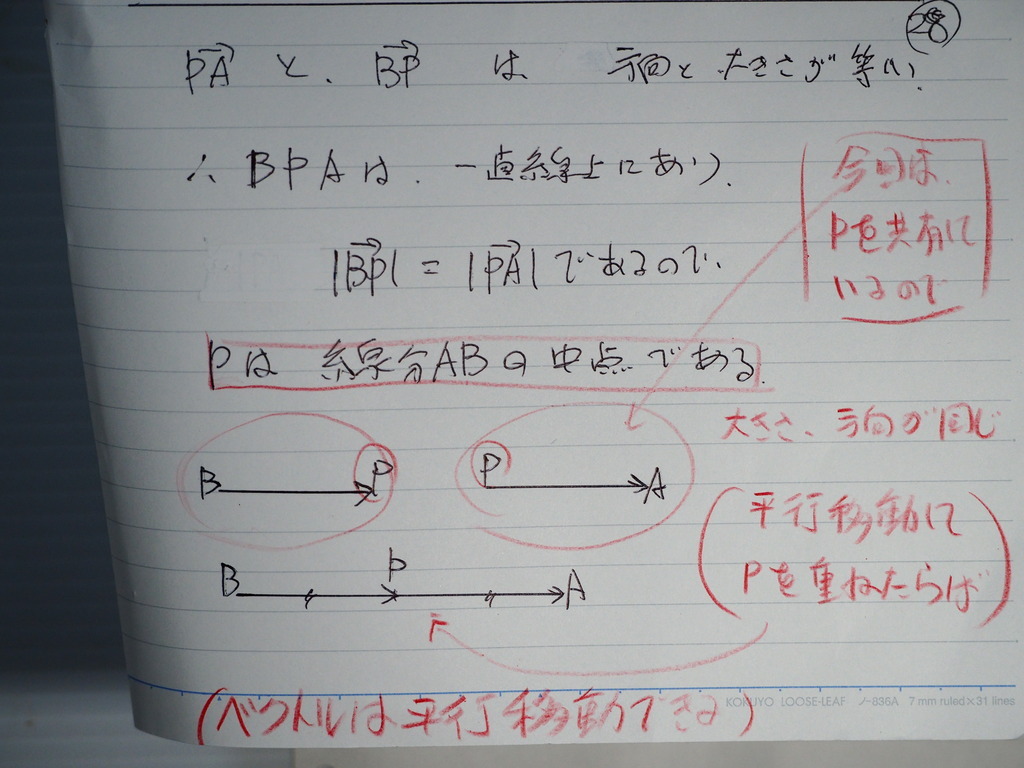 28
PA→ と、BP→ は 方向と大きさが等しい
∴ B P A は、一直線上にあり、
|BP→| = |PA→| であるので、
今回は、
Pを共有して
いるので
Pは 線分ABの中点である。
大きさ、方向が同じ
B P P A
平行移動して
Pを重ねたらば
B P A
(ベクトルは平行移動できる)
KOKUYO LOOSE-LEAF ノ-836A 7 mm ruled×31 lines